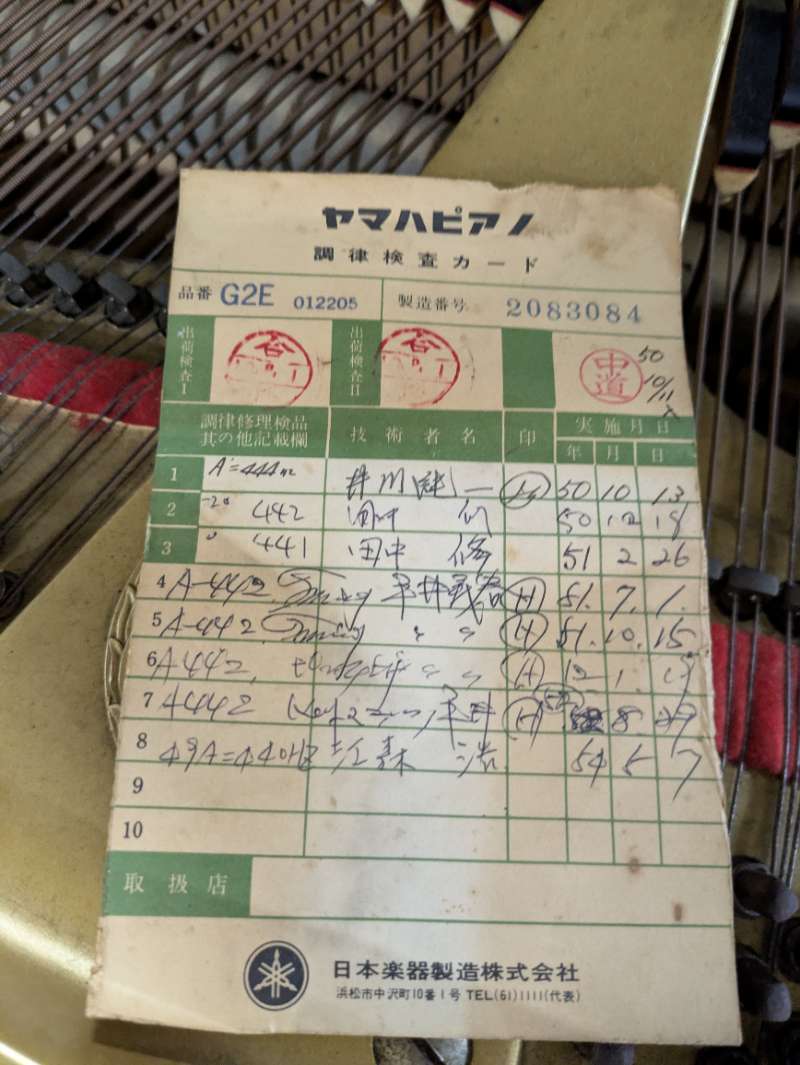 ヤマハピアノ
調律検査カード
品番 G2E 012205 製造番号 2083084
出荷検査I 谷 出荷検査II 谷 中道 50 10/11
調律修理検品其の他記載欄 技術者名 印 実施月日
年 月 日
1 A=444 井川 一 50 10 13
2 -2° 442 田中 50 12
3 441 田中 修 51 2 26
4 A-442 Tuning 平井 H 51. 7. 1.
5 A-442 Tuning 〃 〃 H 51. 10. 15
6 A442. 〃 〃 H 1.
7 A442 平井 H 8.
8 49A=440Hz 54 5 7
9
10
取扱店
日本楽器製造株式会社
浜松市中沢町10番1号 TEL(61)1111(代表)